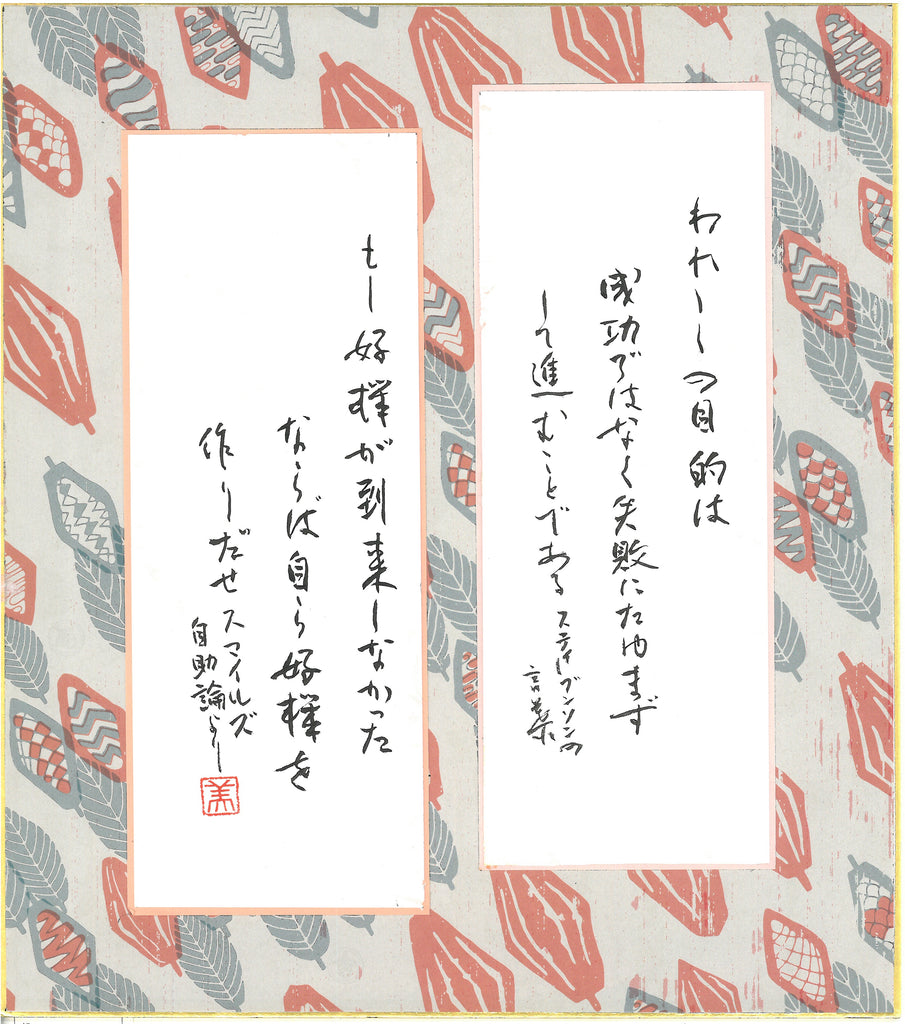 われ〳〵の目的は
成功ではなく失敗にたゆまず
して進むことである スティブンソンの
言葉
もし好機が到来しなかった
ならば自ら好機を
作りだせ スマイルズ
自助論より
美